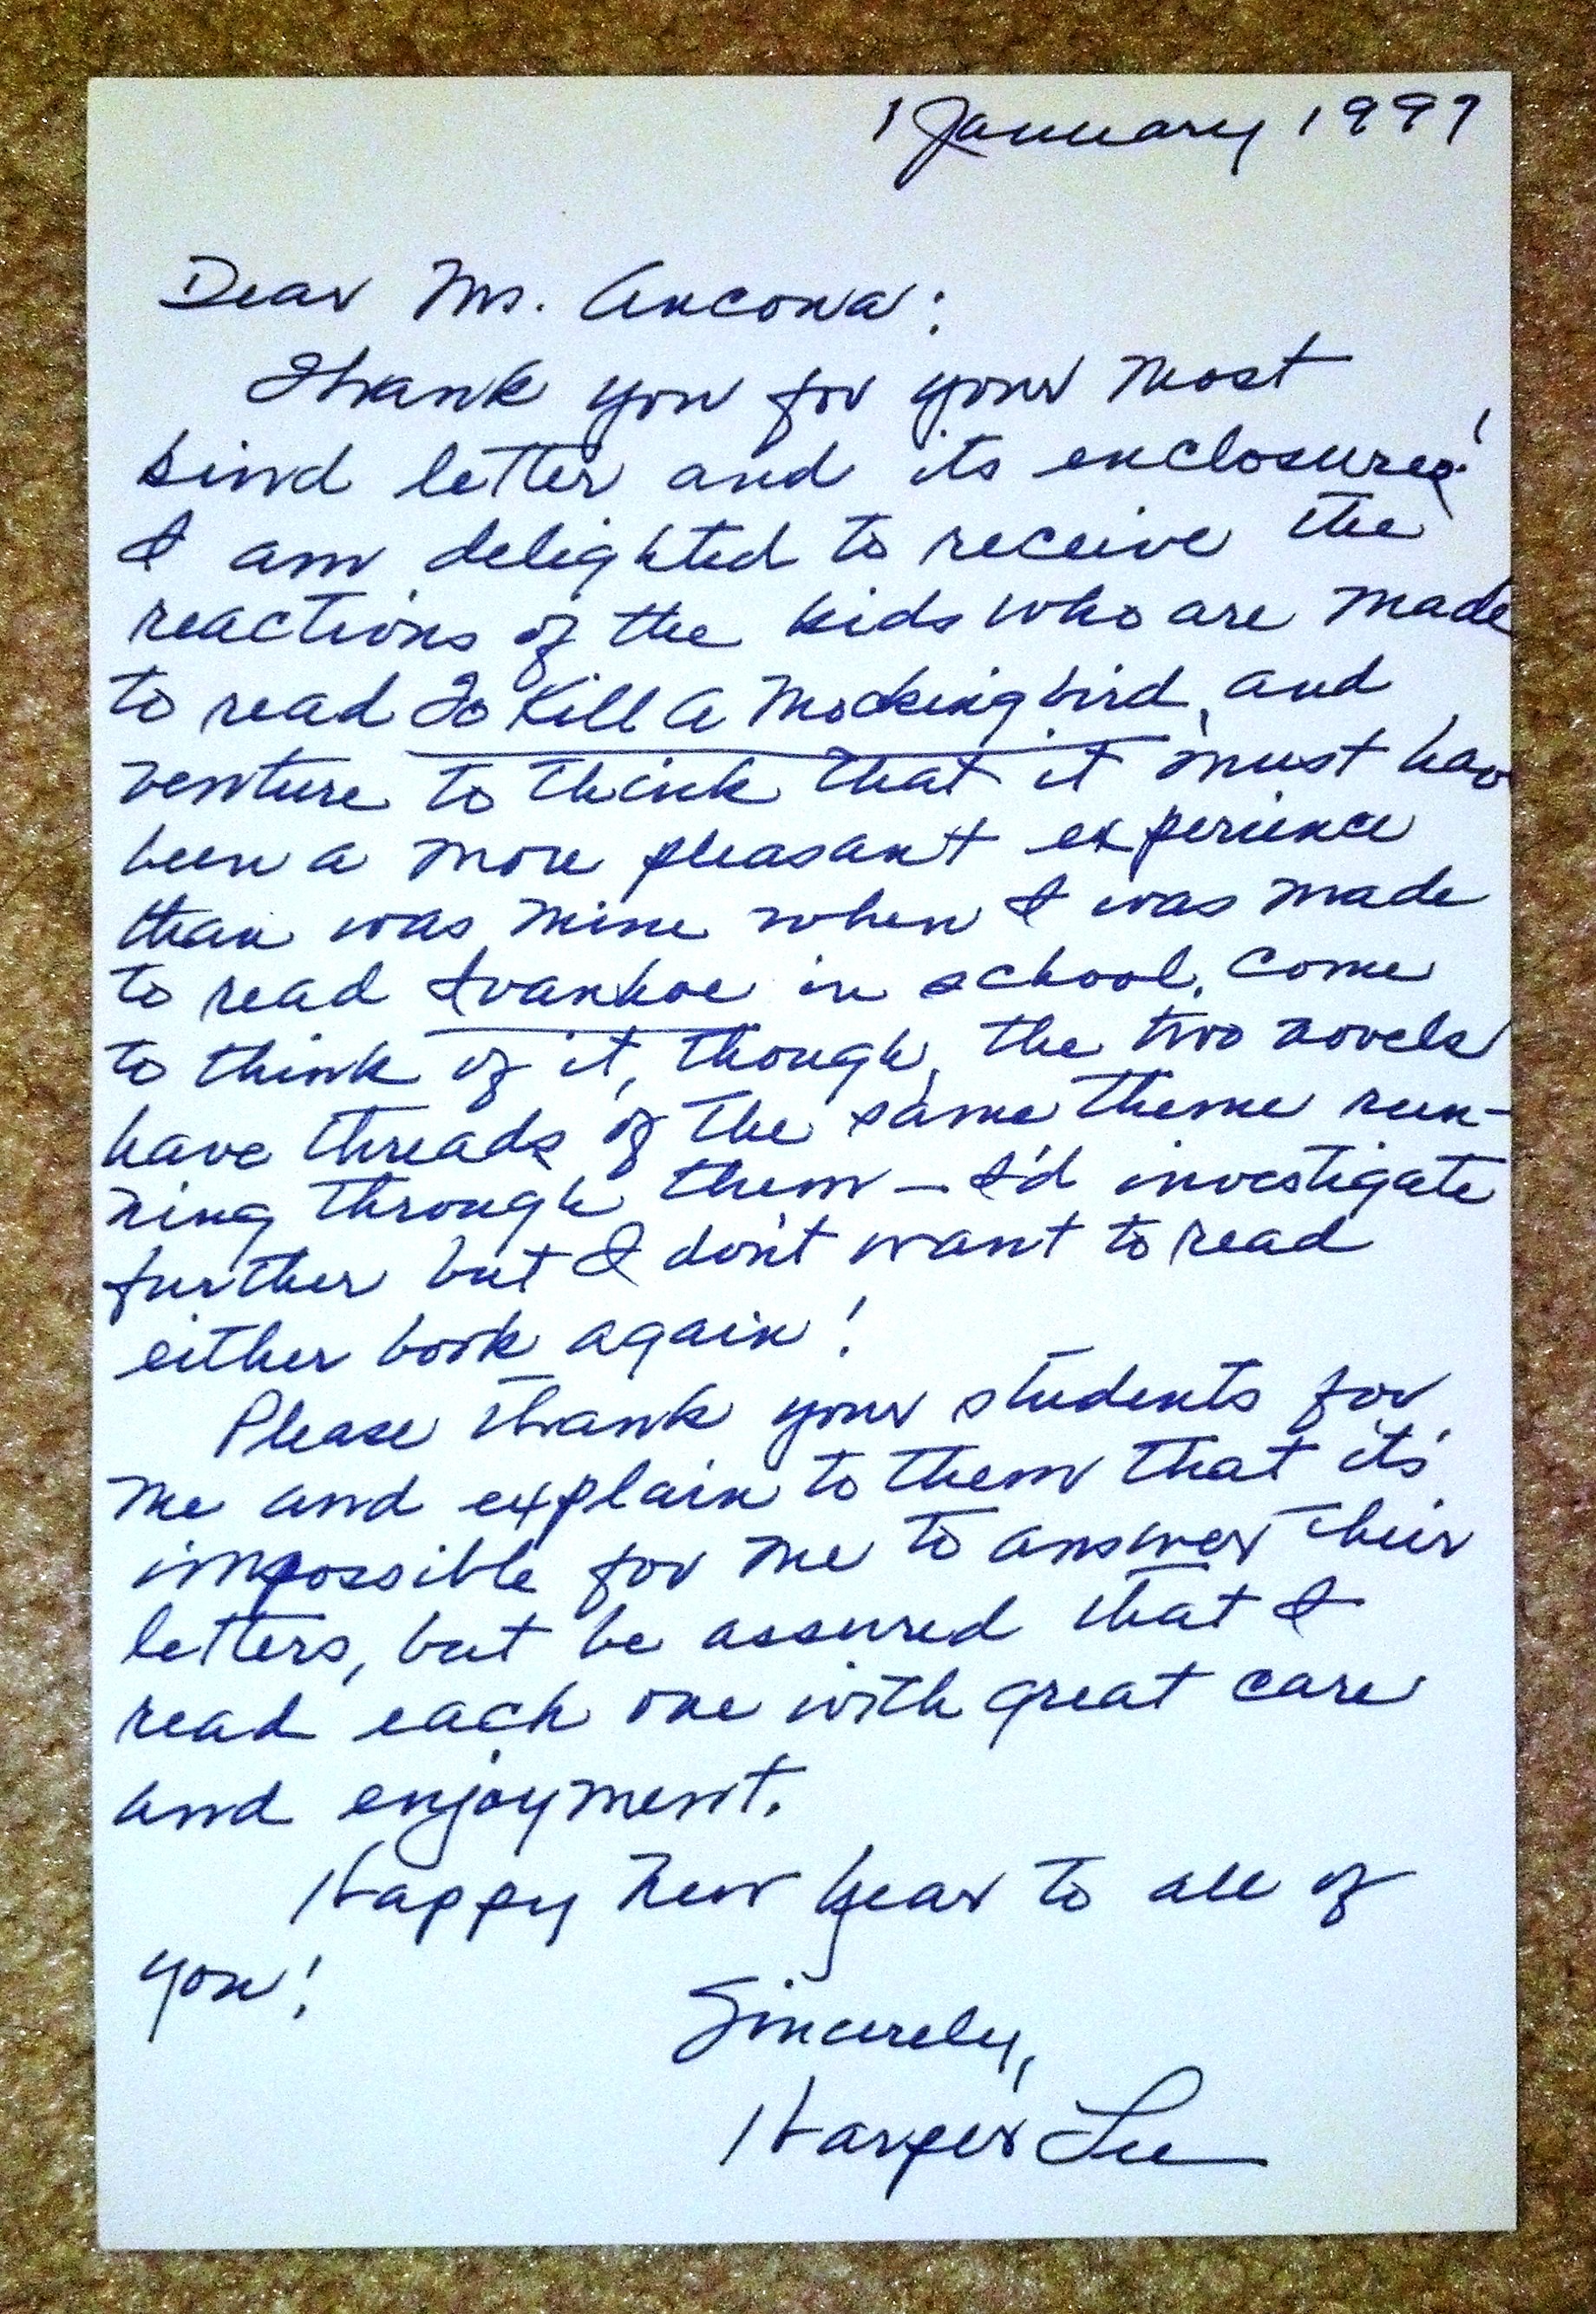 1 January 1997
Dear Ms. Ancona:
Thank you for your most
kind letter and its enclosures!
I am delighted to receive the
reactions of the kids who are made
to read To Kill A Mockingbird, and
venture to think that it must hav
been a more pleasant experience
than was mine when I was made
to read Ivanhoe in school. Come
to think of it, though, the two novels
have threads of the same theme run-
ning through them — I'd investigate
further but I don't want to read
either book again!
Please thank your students for
me and explain to them that it's
impossible for me to answer their
letters, but be assured that I
read each one with great care
and enjoyment.
Happy New Year to all of
you!
Sincerely,
Harper Lee